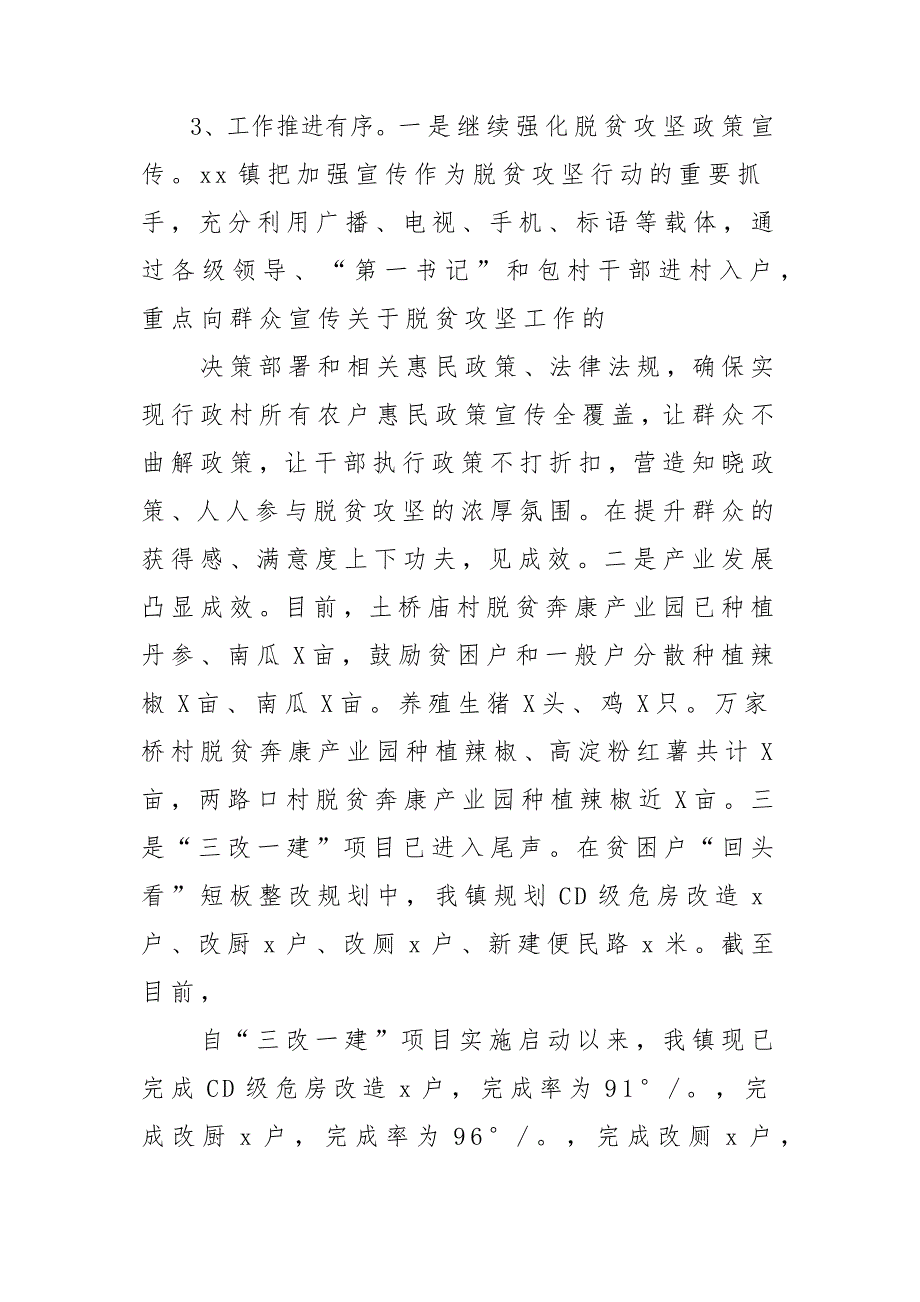 3、工作推进有序。一是继续强化脱贫攻坚政策宣
传。xx镇把加强宣传作为脱贫攻坚行动的重要抓
手，充分利用广播、电视、手机、标语等载体，通
过各级领导、“第一书记”和包村干部进村入户，
重点向群众宣传关于脱贫攻坚工作的
决策部署和相关惠民政策、法律法规，确保实
现行政村所有农户惠民政策宣传全覆盖，让群众不
曲解政策，让干部执行政策不打折扣，营造知晓政
策、人人参与脱贫攻坚的浓厚氛围。在提升群众的
获得感、满意度上下功夫，见成效。二是产业发展
凸显成效。目前，土桥庙村脱贫奔康产业园已种植
丹参、南瓜X亩，鼓励贫困户和一般户分散种植辣
椒X亩、南瓜X亩。养殖生猪X头、鸡X只。万家
桥村脱贫奔康产业园种植辣椒、高淀粉红薯共计X
亩，两路口村脱贫奔康产业园种植辣椒近X亩。三
是“三改一建”项目已进入尾声。在贫困户“回头
看”短板整改规划中，我镇规划CD级危房改造x
户、改厨x户、改厕x户、新建便民路x米。截至
目前，
自“三改一建”项目实施启动以来，我镇现已
完成CD级危房改造x户，完成率为91°/。，完
成改厨x户，完成率为96°/。，完成改厕x户，